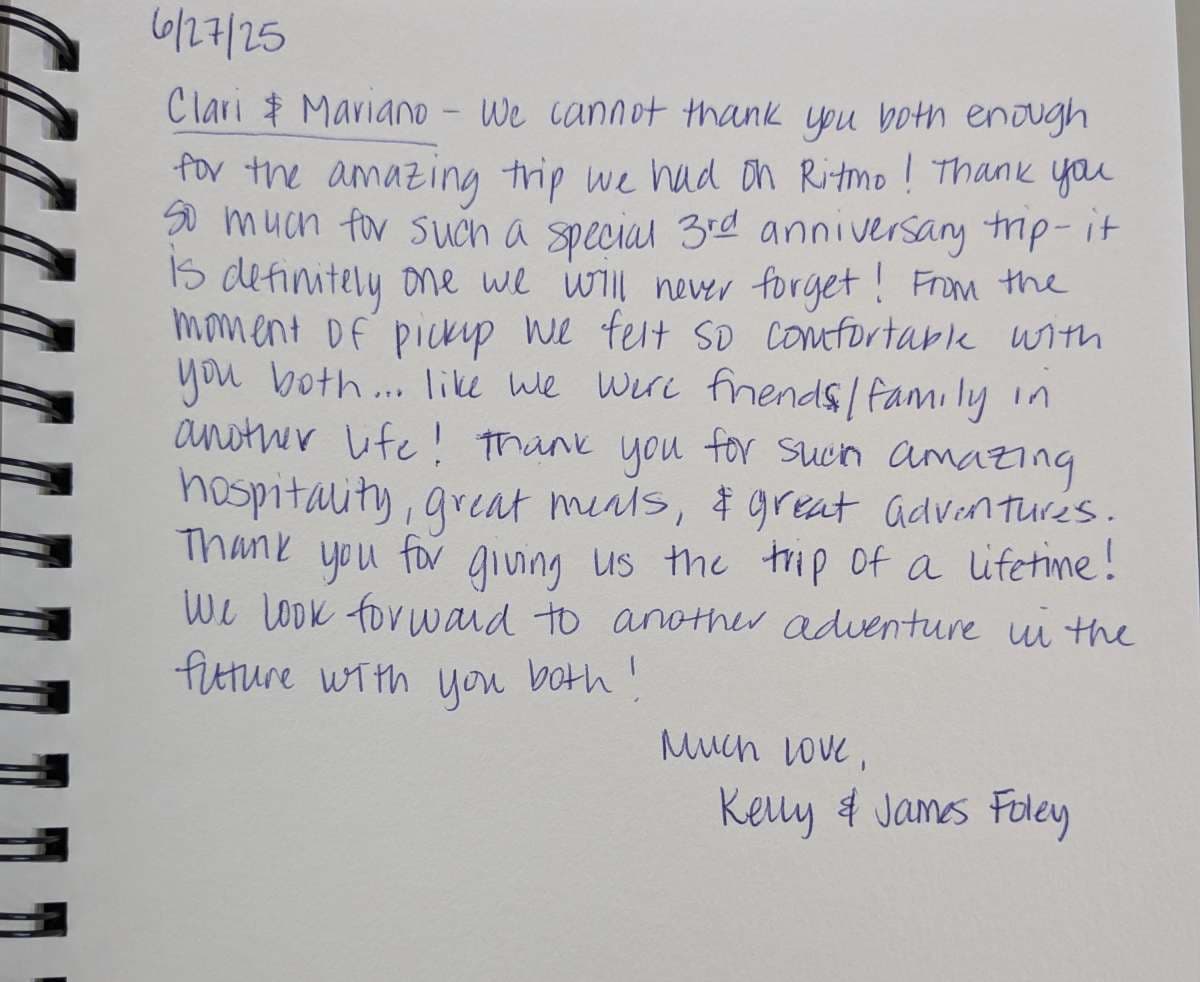 6/27/25
Clari & Mariano - We cannot thank you both enough
for the amazing trip we had on Ritmo! Thank you
so much for such a special 3rd anniversary trip - it
is definitely one we will never forget! From the
moment of pickup we felt so comfortable with
you both... like we were friends/family in
another life! Thank you for such amazing
hospitality, great meals, & great adventures.
Thank you for giving us the trip of a lifetime!
We look forward to another adventure in the
future with you both!
Much love,
Kelly & James Foley